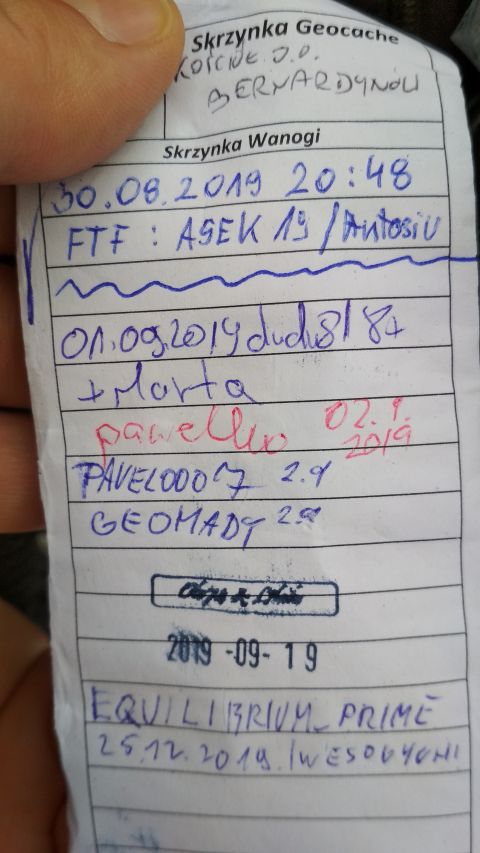 Skrzynka Geocache
KOŚCIÓŁ O.O.
BERNARDYNÓW
Skrzynka Wanogi
30.08.2019 20:48
FTF : ASEK 19 / Antosiu
01.09.2019 dudu81 84
+ Marta
pawelko 02.9.
2019
PAVELOOO17 2.9
GEOMADY 2.9
2019-09-19
EQUILIBRIUM_PRIME
25.12.2019.